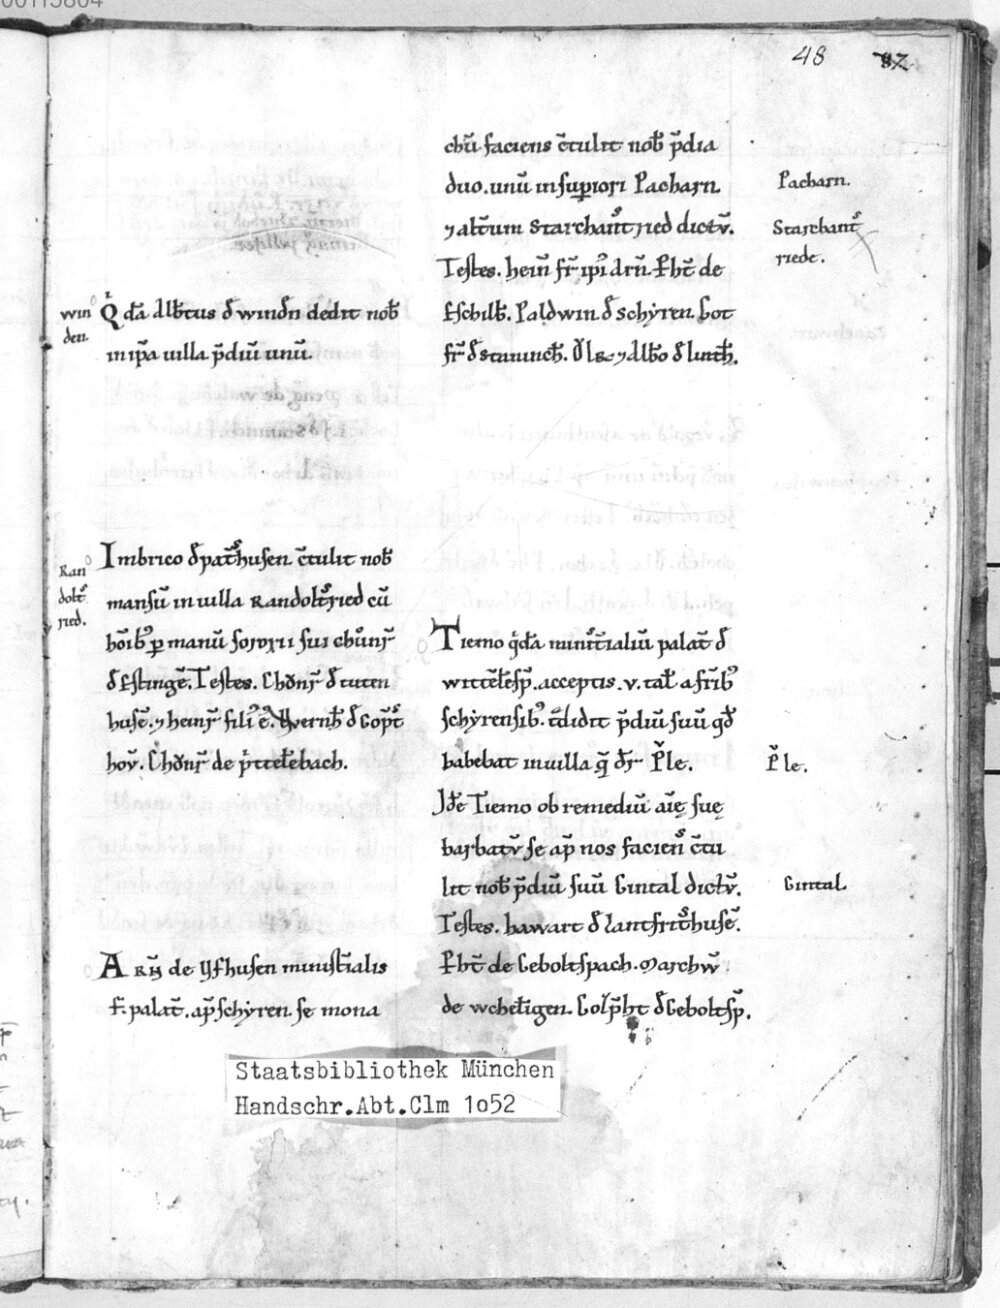 48
87
win
den.
Qͥdā Albtus đ windn dedit nob̄
in ip̄a uilla p̄diū unū.
Ran
dolt̄
ried.
Imbrico đ pat̄husen c̄tulit nob̄
mansū in uilla Randolt̄ried cū
hōīb ꝑ manū sororii sui chūnr̄
đ Estingē. Testes. Chōnr̄ đ tuten
husē. ⁊ heinr̄ filī ē. Wernh̄ đ
hov̄. Chōnr̄ de p̄ttēbach.
Arn̄ de ysfhusen minist̄ialis
F. palat̄. ap̄ schyren se mona
chū faciens c̄tulit nob̄ p̄dia
duo. unū in supiori Pacharn
⁊ alt̄um Starchant̄ried dictū.
Testes. hein̄ fr̄ ipī Arn̄. Ēbt̄ de
Eschilb̄. Paldwin đ schyren. Got
fr̄ đ
Pacharn.
Starchant̄
riede.
Tiemo qͥdā minist̄ialiū palat̄ đ
witt̄esp̄. acceptis. v. tal̄ a frīb
schyrensib. t̄didit p̄diū suū qđ
habebat in uilla q̄ dr̄ P̄le.
Idē Tiemo ob remediū aīę suę
barbatū se ap nos facien̄ c̄tu
lit nob̄ p̄diū suū Gintal dictū.
Testes. hawart đ lantfrid̄husē.
Ēbt̄ de Geboltspach. Marchw̄
de wchelt̄igen. Golp̄ht đ Geboltsp̄.
P̄le.
Gintal.
Staatsbibliothek München
Handschr.Abt.Clm 1o52